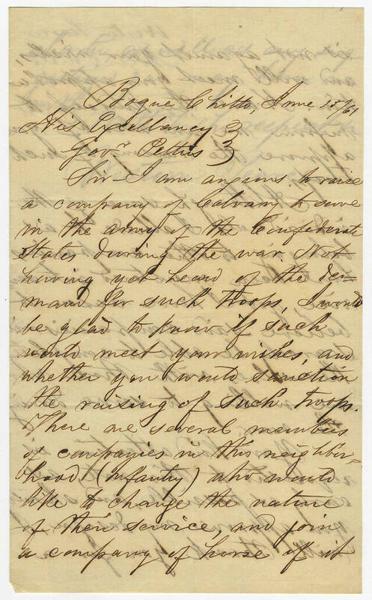 Bogue Chitto, June 15/61
His Excellency }
Gov.r Pettus }
Sir—I am anxious to raise
a company of Calvary to serve
in the army of the Confederate
States during the war. Not
having yet heard of the de-
mand for such troops, I would
be glad to know if such
would meet your wishes, and
whether you would sanction
the raising of such troops.
There are several members
of companies in this neighbor-
hood (infantry) who would
like to change the nature
of their service, and join
a company of horse if it